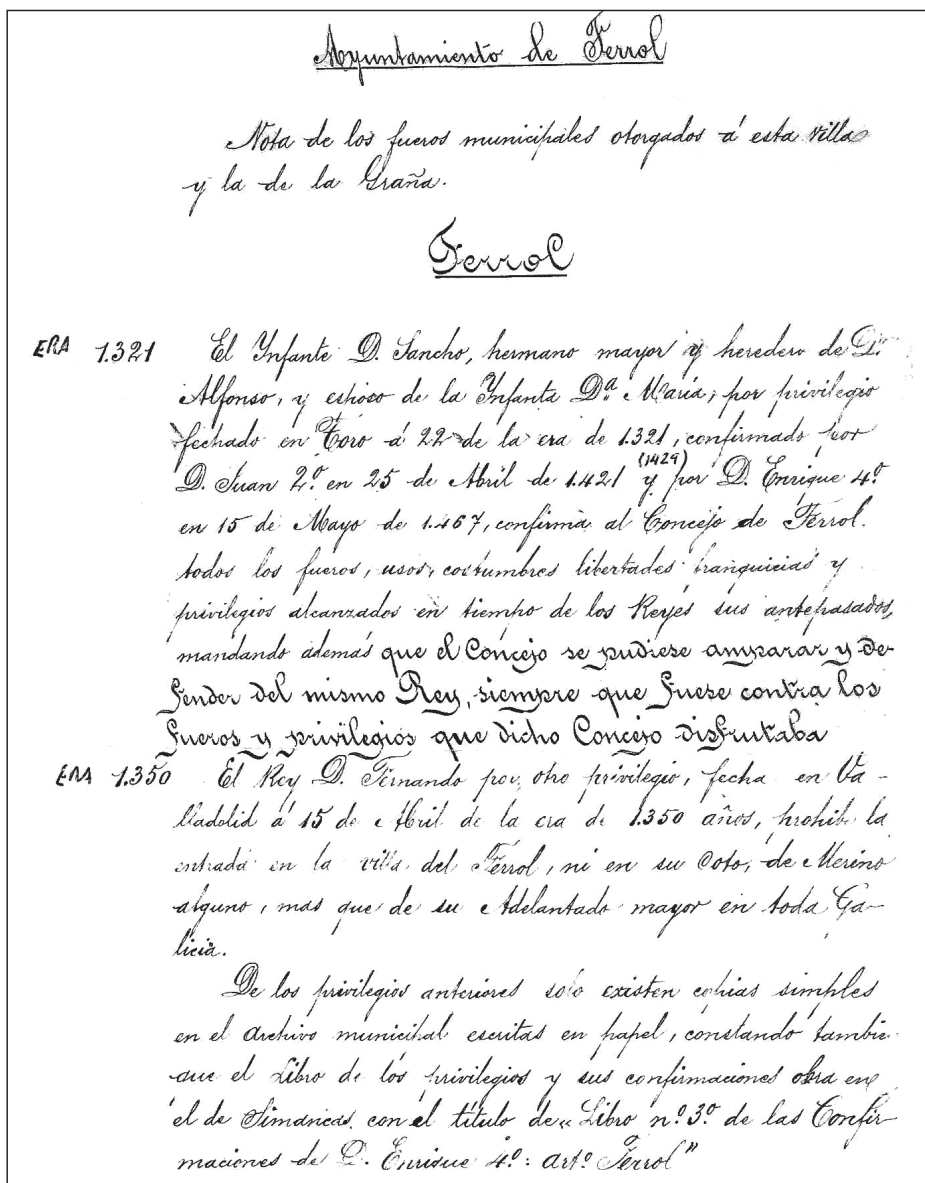 Ayuntamiento de Ferrol
Nota de los fueros municipales otorgados á esta villa
y la de la Graña.
Ferrol
ERA 1.321 El Ynfante D. Sancho, hermano mayor y heredero de D.
Alfonso, y esposo de la Ynfanta Dª María, por privilegio
fechado en Toro á 22 de la era de 1.321, confirmado por
D. Juan 2º en 25 de Abril de 1.421 (1429) y por D. Enrique 4º
en 15 de Mayo de 1.467, confirma al Concejo de Ferrol
todos los fueros, usos, costumbres libertades franquicias y
privilegios alcanzados en tiempo de los Reyes sus antepasados,
mandando además que el Concejo se pudiese amparar y de-
fender del mismo Rey, siempre que fuese contra los
fueros y privilegios que dicho Concejo disfrutaba
ERA 1.350 El Rey D. Fernando por otro privilegio, fecha en Va-
lladolid á 15 de Abril de la era de 1.350 años, prohibe la
entrada en la villa del Ferrol, ni en su Coto, de Merino
alguno, mas que de su Adelantado mayor en toda Ga-
licia.
De los privilegios anteriores solo existen copias simples
en el archivo municipal escritas en papel, constando tambie
que el Libro de los privilegios y sus confirmaciones obra en
el de Simancas con el título de "Libro nº 3º de las Confir-
maciones de D. Enrique 4º: artº Ferrol"